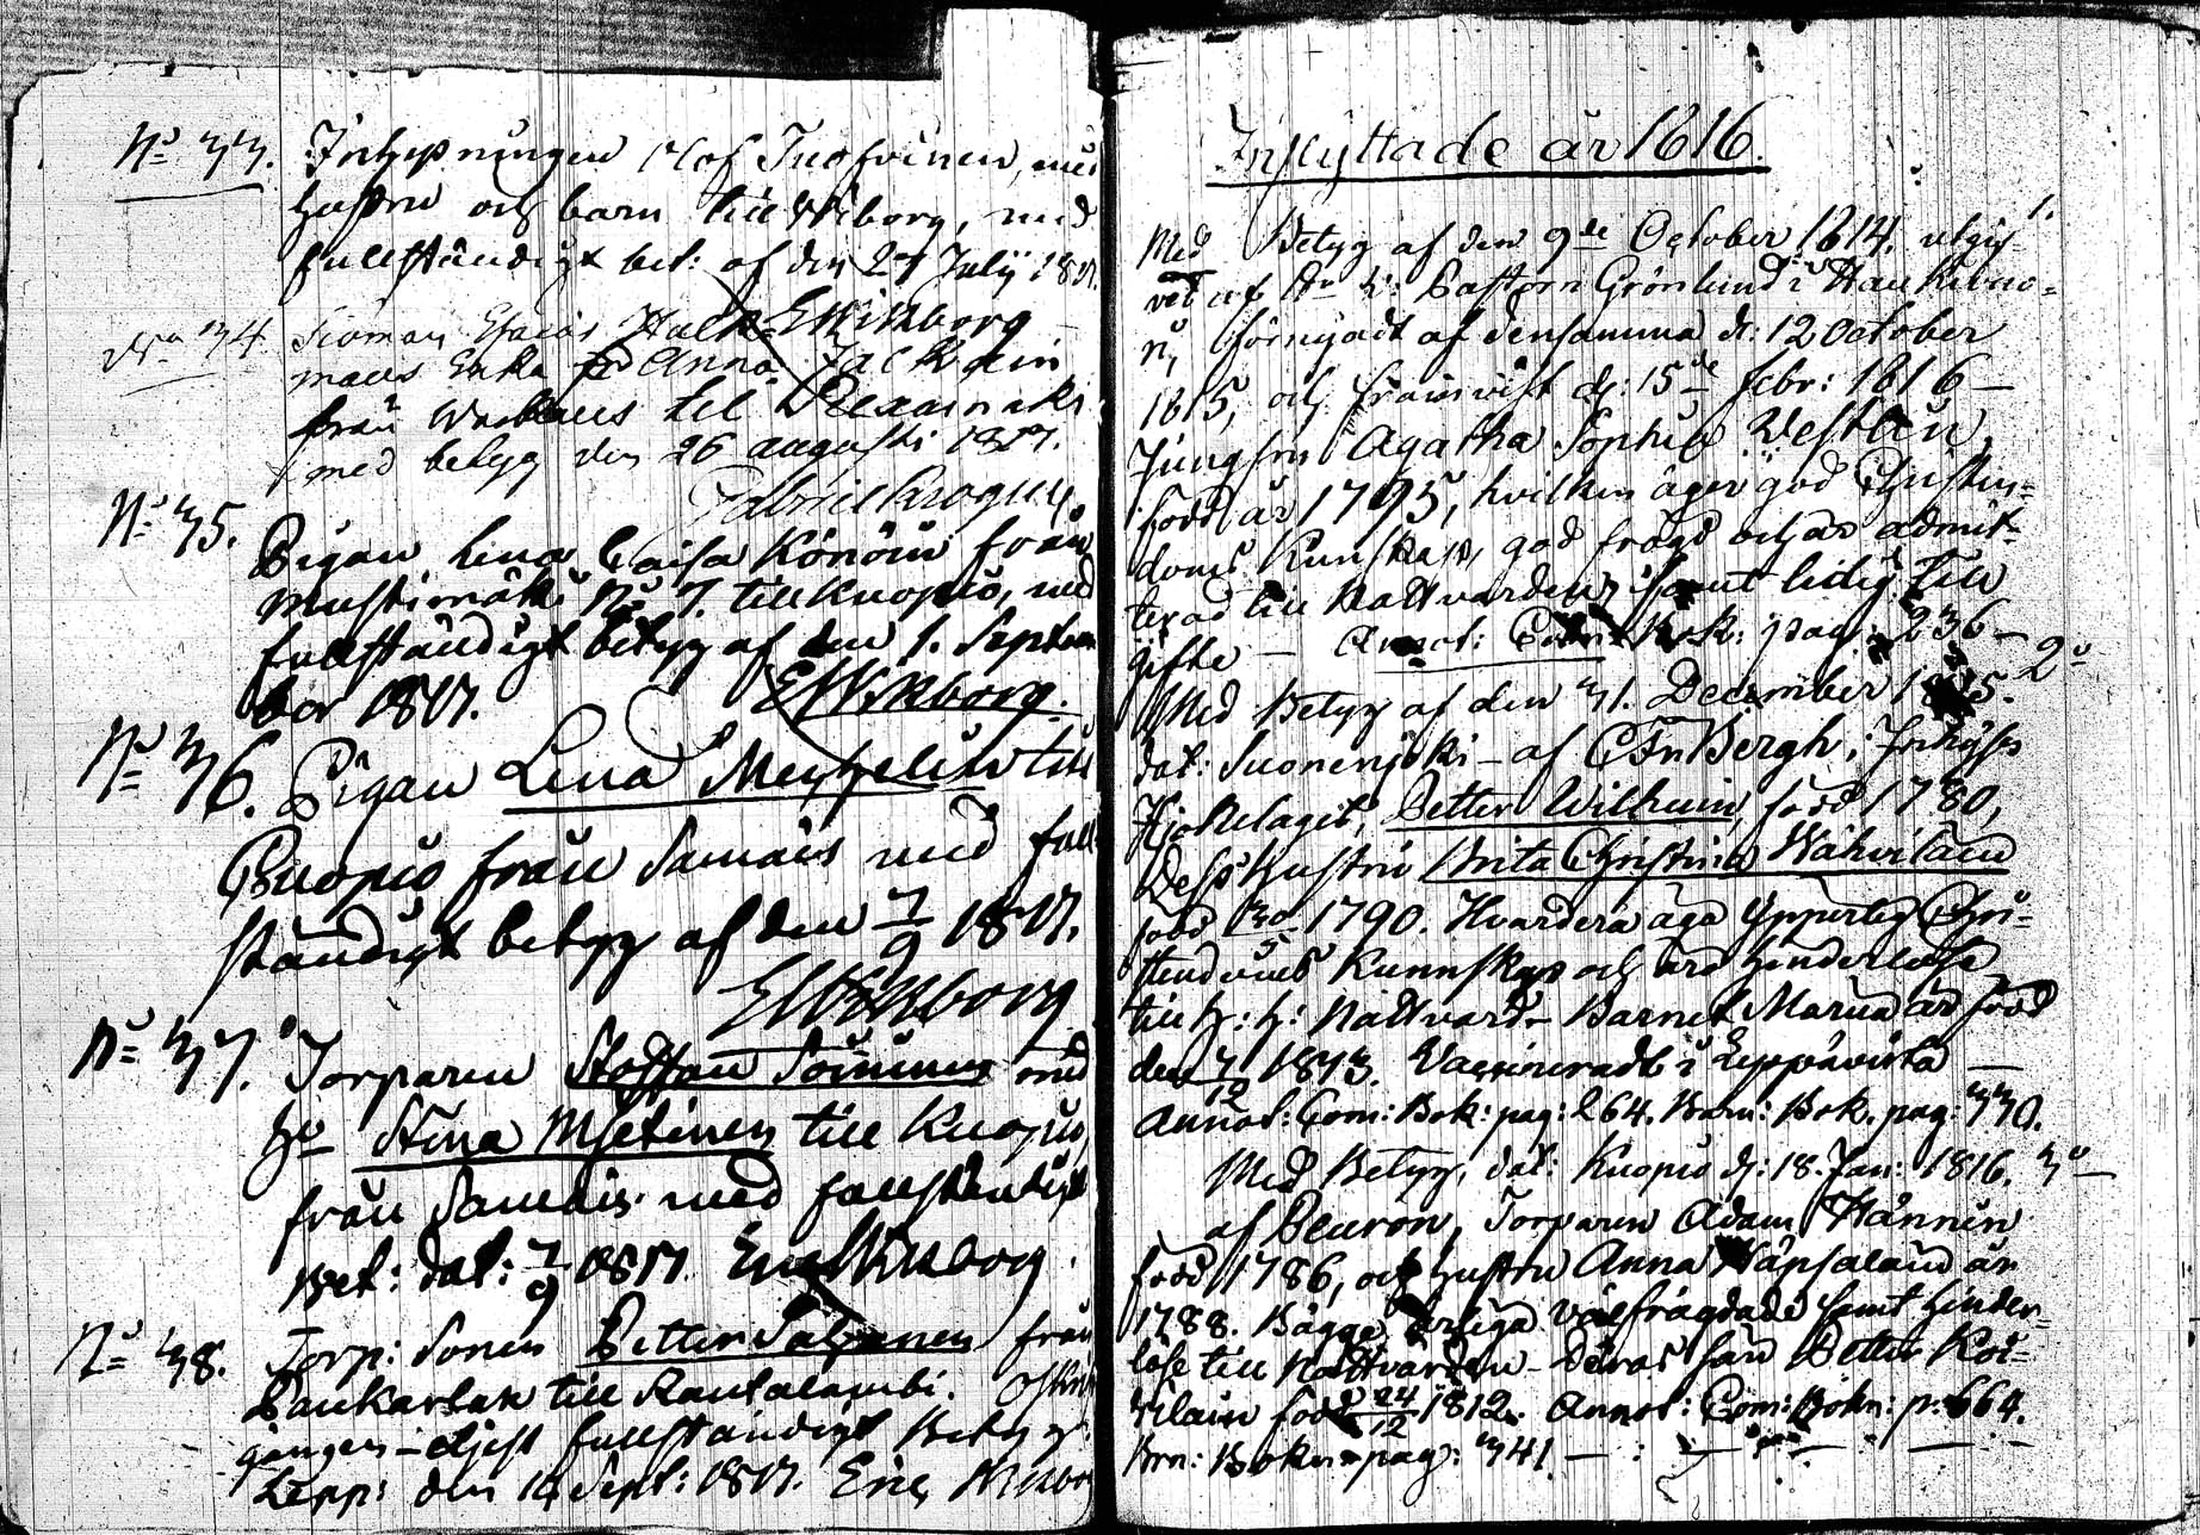 No 33. Inhysningen Olof Tuofvinen, med
hustru och barn till Wiborg, med
fullständigt bet: af den 27 Julij 1817.
E Wikborg
No 34 Esaias
Anna
från till
med betyg den 26 augusti 1817.
Gabriel Krogius
No 35. Pigan Lena Caisa Könöin från
Mustimäki No 7. till Kuopio, med
fullständigt betyg af den 1. Septem
ber 1817. E Wikborg.
No 36. Pigan Lena till
Kuopio från Saamais med full
ständigt betyg af den 7/9 1817.
E Wikborg
No 37. Torparen Staffan Soininen med
hu Stina Mietinen till Kuopio,
från Saamais med fullständigt
Bet: dat: 7/9 1817. Eric Wikborg
No 38. Torp: Sonen Petter från
Paukarlax till Rautalambi.
gången – eljest fullständigt Betyg
Lepp: den 14 Sept: 1817. Eric Wikbor
Inflyttade år 1816.
1.
Med Betyg af den 9de October 1814. utgif
vet af Pastorn Grönlund i Haukivuo=
ri, förnyadt af densamma d: 12 October
1815, och framvist d: 15de Febr: 1816 –
Jungfru Agatha Sophia Westlin,
född år 1795, hvilken äger god Christen=
doms Kunskap, god frägd och är admit=
terad till Nattvarden, samt ledig till
gifte – Annot: Bok: pag: 236 –
2o
Med Betyg af den 31. December 1815.
dat: Suonenjoki – af Bergh, Inhyses
Hjonelaget, Petter Wilhuin, född 1780,
Dess hustru Brita Christina Wähviläin
född 1790. Hvardera äga ypperlig Chri=
stendoms Kunnskap och äro hinderlöse
till h: h: Nattvard – Barnet Maria är född
den 1813. Vaccineradt i Leppävirta –
Annot: Com: Bok: pag: 264. Barn: Bok. pag: 330.
Med Betyg, dat: Kuopio d: 18. Jan: 1816. 3o –
af Peuron, Torparen Adam Hännin
född 1786, och hustru Anna år
1788. Bägge ärliga välfrägdade samt hinder=
löse till Nattvarden – deras son Petter
född 24/12 1812. Annot: Com: Boken: p: 664.
Brn: Boken pag: 341 –